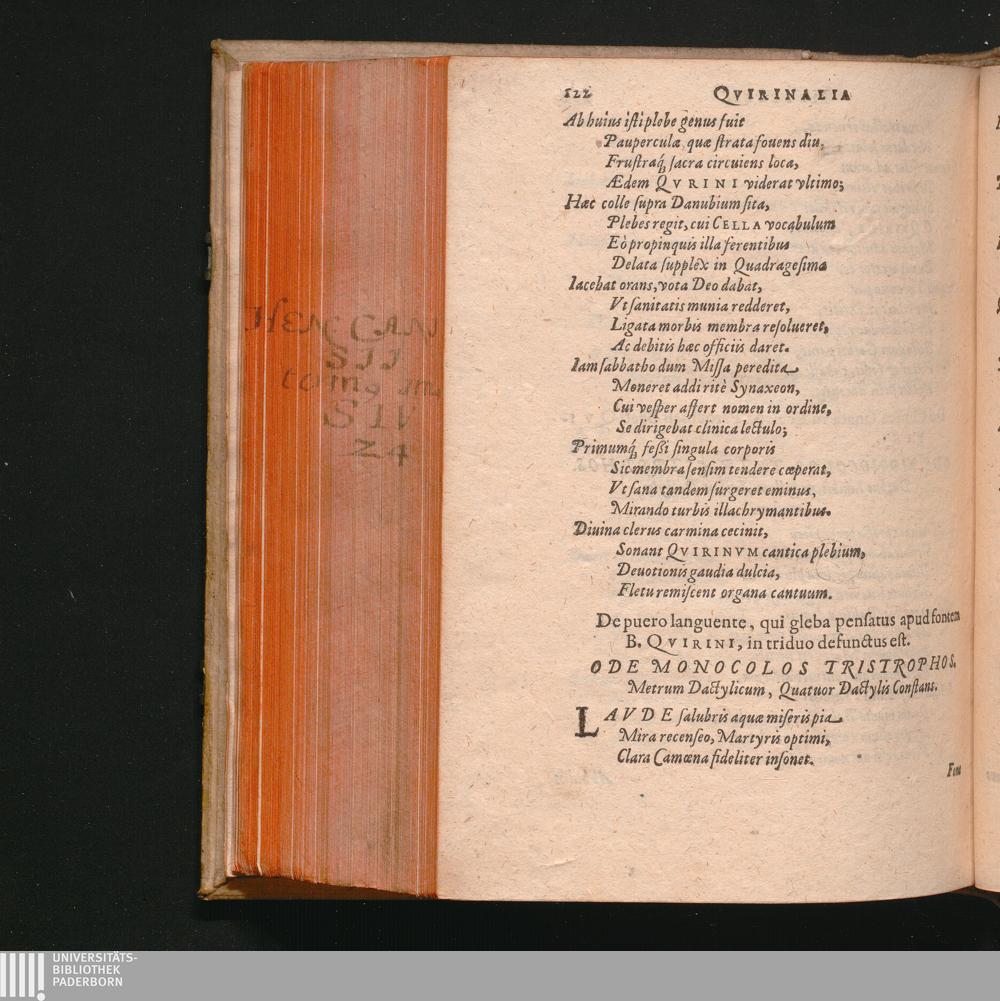 122 QVIRINALIA
Ab huius isti plebe genus fuit
Pauperculæ quæ strata fouens diu,
Frustraq́; sacra circuiens loca,
Ædem QVRINI viderat vltimo;
Hæc colle supra Danubium sita,
Plebes regit, cui CELLA vocabulum
Eò propinquis illa ferentibus
Delata supplex in Quadragesima
Iacebat orans, vota Deo dabat,
Vt sanitatis munia redderet,
Ligata morbis membra resolueret,
Ac debitis hæc officiis daret.
Iam sabbatho dum Missa peredita
Moneret addi ritè Synaxeon,
Cui vesper affert nomen in ordine,
Se dirigebat clinica lectulo;
Primumq́; fessi singula corporis
Sic membra sensim tendere cœperat,
Vt sana tandem surgeret eminus,
Mirando turbis illachrymantibus.
Diuina clerus carmina cecinit,
Sonant QVIRINVM cantica plebium,
Deuotionis gaudia dulcia,
Fletu remiscent organa cantuum.
De puero languente, qui gleba pensatus apud fontem
B. QVIRINI, in triduo defunctus est.
ODE MONOCOLOS TRISTROPHOS.
Metrum Dactylicum, Quatuor Dactylis Constans.
LAVDE salubris aquæ miseris pia
Mira recenseo, Martyris optimi,
Clara Camœna fideliter insonet.
HENC CANI
SII
tomo
SIV
24
UNIVERSITÄTS-
BIBLIOTHEK
PADERBORN